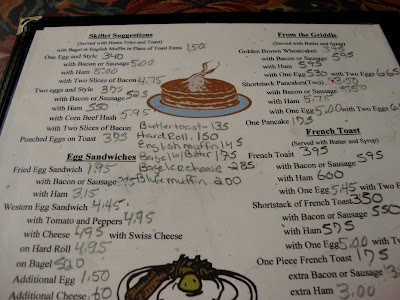 Skillet Suggestions
(Served with Home Fries and Toast)
with Bagel or English Muffin in Place of Toast Extra 1.50
One Egg and Style 340
with Bacon or Sausage 5.00
with Ham 5.00
with Two Slices of Bacon 4.75
Two eggs and Style
with Bacon or Sausage 525
with Ham 550
with Corn Beef Hash 5.95
with Two Slices of Bacon
Poached Eggs on Toast
Butter toast - 135
Hard roll. 150
English muffin 145
Bagel w/ Butter 175
Bagel cr cheese 285
Blue muffin. 200
Egg Sandwiches
Fried Egg Sandwich 1.95
with Bacon or Sausage
with Ham 3.15
Western Egg Sandwich 4.45
with Tomato and Peppers 4.95
with Cheese 495 with Swiss Cheese
on Hard Roll 4.95
on Bagel 520
Additional Egg 1.50
Additional Cheese 60
From the Griddle
(Served with Butter and Syrup)
Golden Brown Wheatcakes
with Bacon or Sausage 595
with Ham 595
with One Egg 530 with Two Eggs 665
Shortstack Pancakes (Two) 350
with Bacon or Sausage
with Ham 5.75
with One Egg 5.00 with Two Eggs
One Pancake 175
French Toast
(Served with Butter and Syrup)
French Toast 395
with Bacon or Sausage 595
with Ham 600
with One Egg 5.45 with Two
Shortstack of French Toast 350
with Bacon or Sausage 550
with Ham 575
with One Egg 5.00 with Two
One Piece French Toast 175
extra Bacon or Sausage
extra Ham 3.00